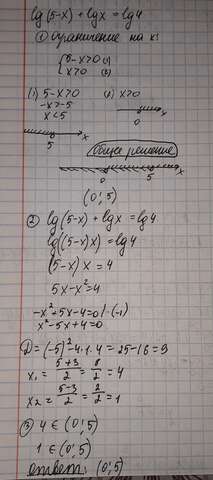 lg(5-x) + lgx = lg4
① ограничение на x:
{5-x>0 (1)
x>0 (2)
(1) 5-x>0 (2) x>0
-x>-5
x<5
0 x
5 x
Общее решение
0 5 x
(0; 5)
② lg(5-x) + lgx = lg4
lg((5-x)x) = lg4
(5-x)x = 4
5x-x²=4
-x²+5x-4=0 /·(-1)
x²-5x+4=0
D = (-5)²-4·1·4 = 25-16 = 9
x₁ = (5+3)/2 = 8/2 = 4
x₂ = (5-3)/2 = 2/2 = 1
③ 4 ∈ (0; 5)
1 ∈ (0; 5)
ответ: (0; 5)